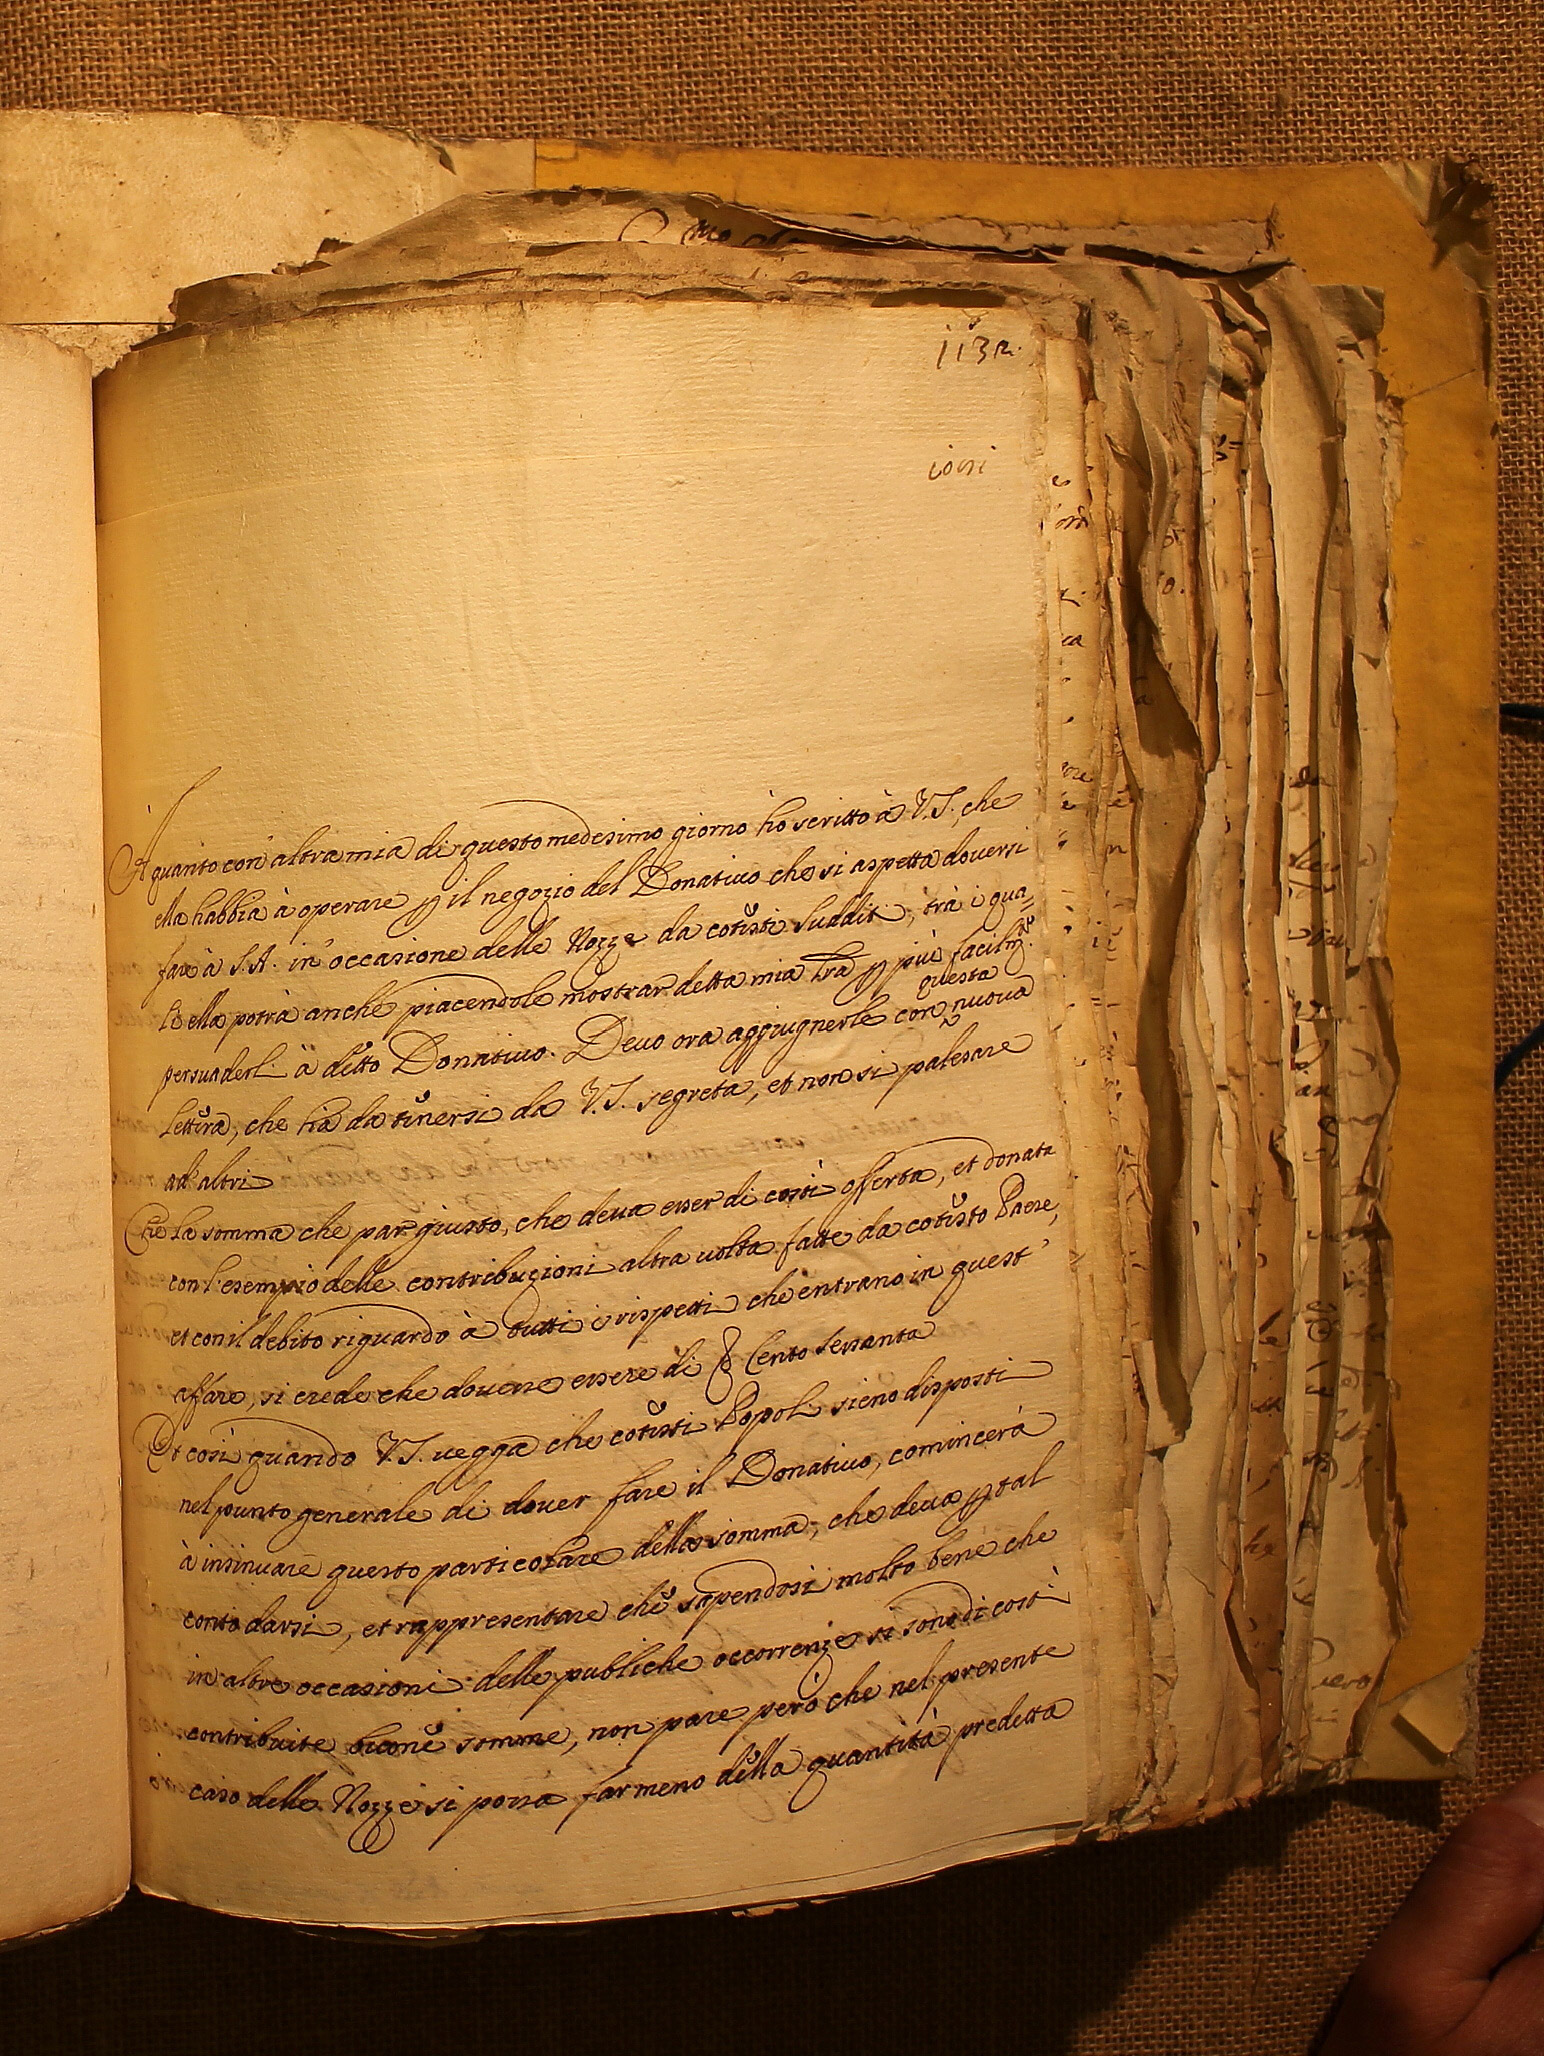 113 R.
1091
À quanto con altra mia di questo medesimo giorno hò scritto à V.S., che
ella habbia à operare p il negozio del Donativo che si aspetta doversi
fare à S.A. in occasione delle Nozze da cotesti sudditi, trà i qua=
li ella potrà anche piacendole mostrar detta mia lra p più facilmte
persuaderli à detto Donativo. Devo ora aggiugnerle con questa nuova
lettera, che hà da tenersi da V.S. segreta, et non si palesare
ad altri
Che la somma che par giusto, che deva esser di costì offerta, et donata
con l'esempio delle contribuzioni altra volta fatte da cotesto Paese,
et con il debito riguardo à tutti i rispetti che entrano in quest'
affare, si crede che dovere essere di Cento sessanta
Et così quando V.S. vegga che cotesti Popoli sieno disposti
nel punto generale di dover fare il Donativo, comincerà
à insinuare questo particolare della somma, che deva p tal
conto darsi, et rappresentare che sapendosi molto bene che
in altre occasioni delle publiche occorrenze si sono di costì
contribuite buone somme, non pare però che nel presente
caso delle Nozze si possa far meno della quantità predetta